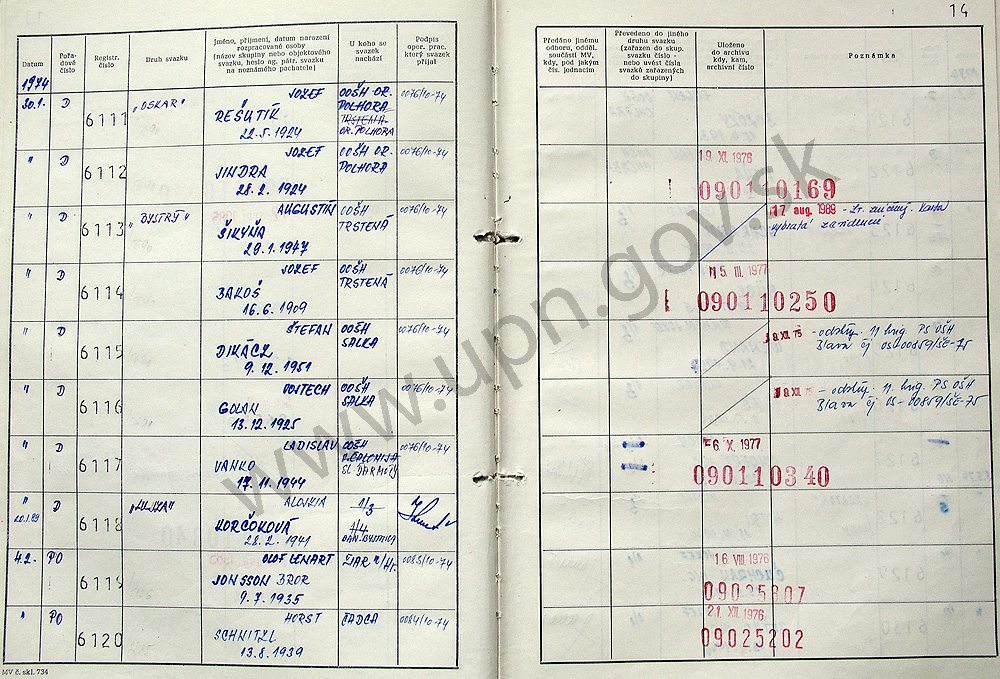 14
Datum
Pořa-
dové
číslo
Registr.
číslo
Druh svazku
Jméno, příjmení, datum narození
rozpracované osoby
(název skupiny nebo objektového
svazku, heslo ag. pátr. svazku
na neznámého pachatele)
U koho se
svazek
nachází
Podpis
oper. prac.
který svazek
přijal
Předáno jinému
odboru, odděl.
součásti MV,
kdy, pod jakým
čís. jednacím
Převedeno do jiného
druhu svazku
(zařazen do skup.
svazku číslo -
nebo uvést čísla
svazků zařazených
do skupiny)
Uloženo
do archivu
kdy, kam,
archivní číslo
Poznámka
1974
30.1. D 6111 "OSKAR" JOZEF
REŠUTÍK
22.5.1924
OOŠH OR.
POLHORA
TRSTENÁ
OR. POLHORA
0076/10-74
" D 6112 JOZEF
JINDRA
28.2.1924
OOŠH OR.
POLHORA
0076/10-74
19 XI. 1976
090110169
" D 6113 "BYSTRÝ" AUGUSTÍN
ŠIKYŇA
29.1.1947
OOŠH
TRSTENÁ
0076/10-74
17 aug. 1989
" D 6114 JOZEF
BAKOŠ
16.6.1909
OOŠH
TRSTENÁ
0076/10-74
15. III. 1977
090110250
" D 6115 ŠTEFAN
DIKÁCZ
9.12.1951
OOŠH
SALKA
0076/10-74
XII 75 - odstúp. 11 brig. PS OŠH
Blava čj OS-00859/SČ-75
" D 6116 VOJTECH
GOLAN
13.12.1925
OOŠH
SALKA
0076/10-74
XII 75 - odstúp. 11 brig. PS OŠH
Blava čj OS-00859/SČ-75
" D 6117 LADISLAV
VANKO
17.11.1944
OOŠH
SL. ĎARMOTY
0076/10-74
6. X. 1977
090110340
" D 6118 ALOJZIA
KORČOKOVÁ
28.2.1941
II/3
4.2. PO 6119 OLOF LENART
JONSSON BROR
9.7.1935
ŽIAR n/Hr.
0085/10-74
16 VIII 1976
09025807
" PO 6120 HORST
SCHNITZL
13.8.1939
ČADCA
0084/10-74
21. XII. 1976
09025202
MV č. skl. 734
www.upn.gov.sk